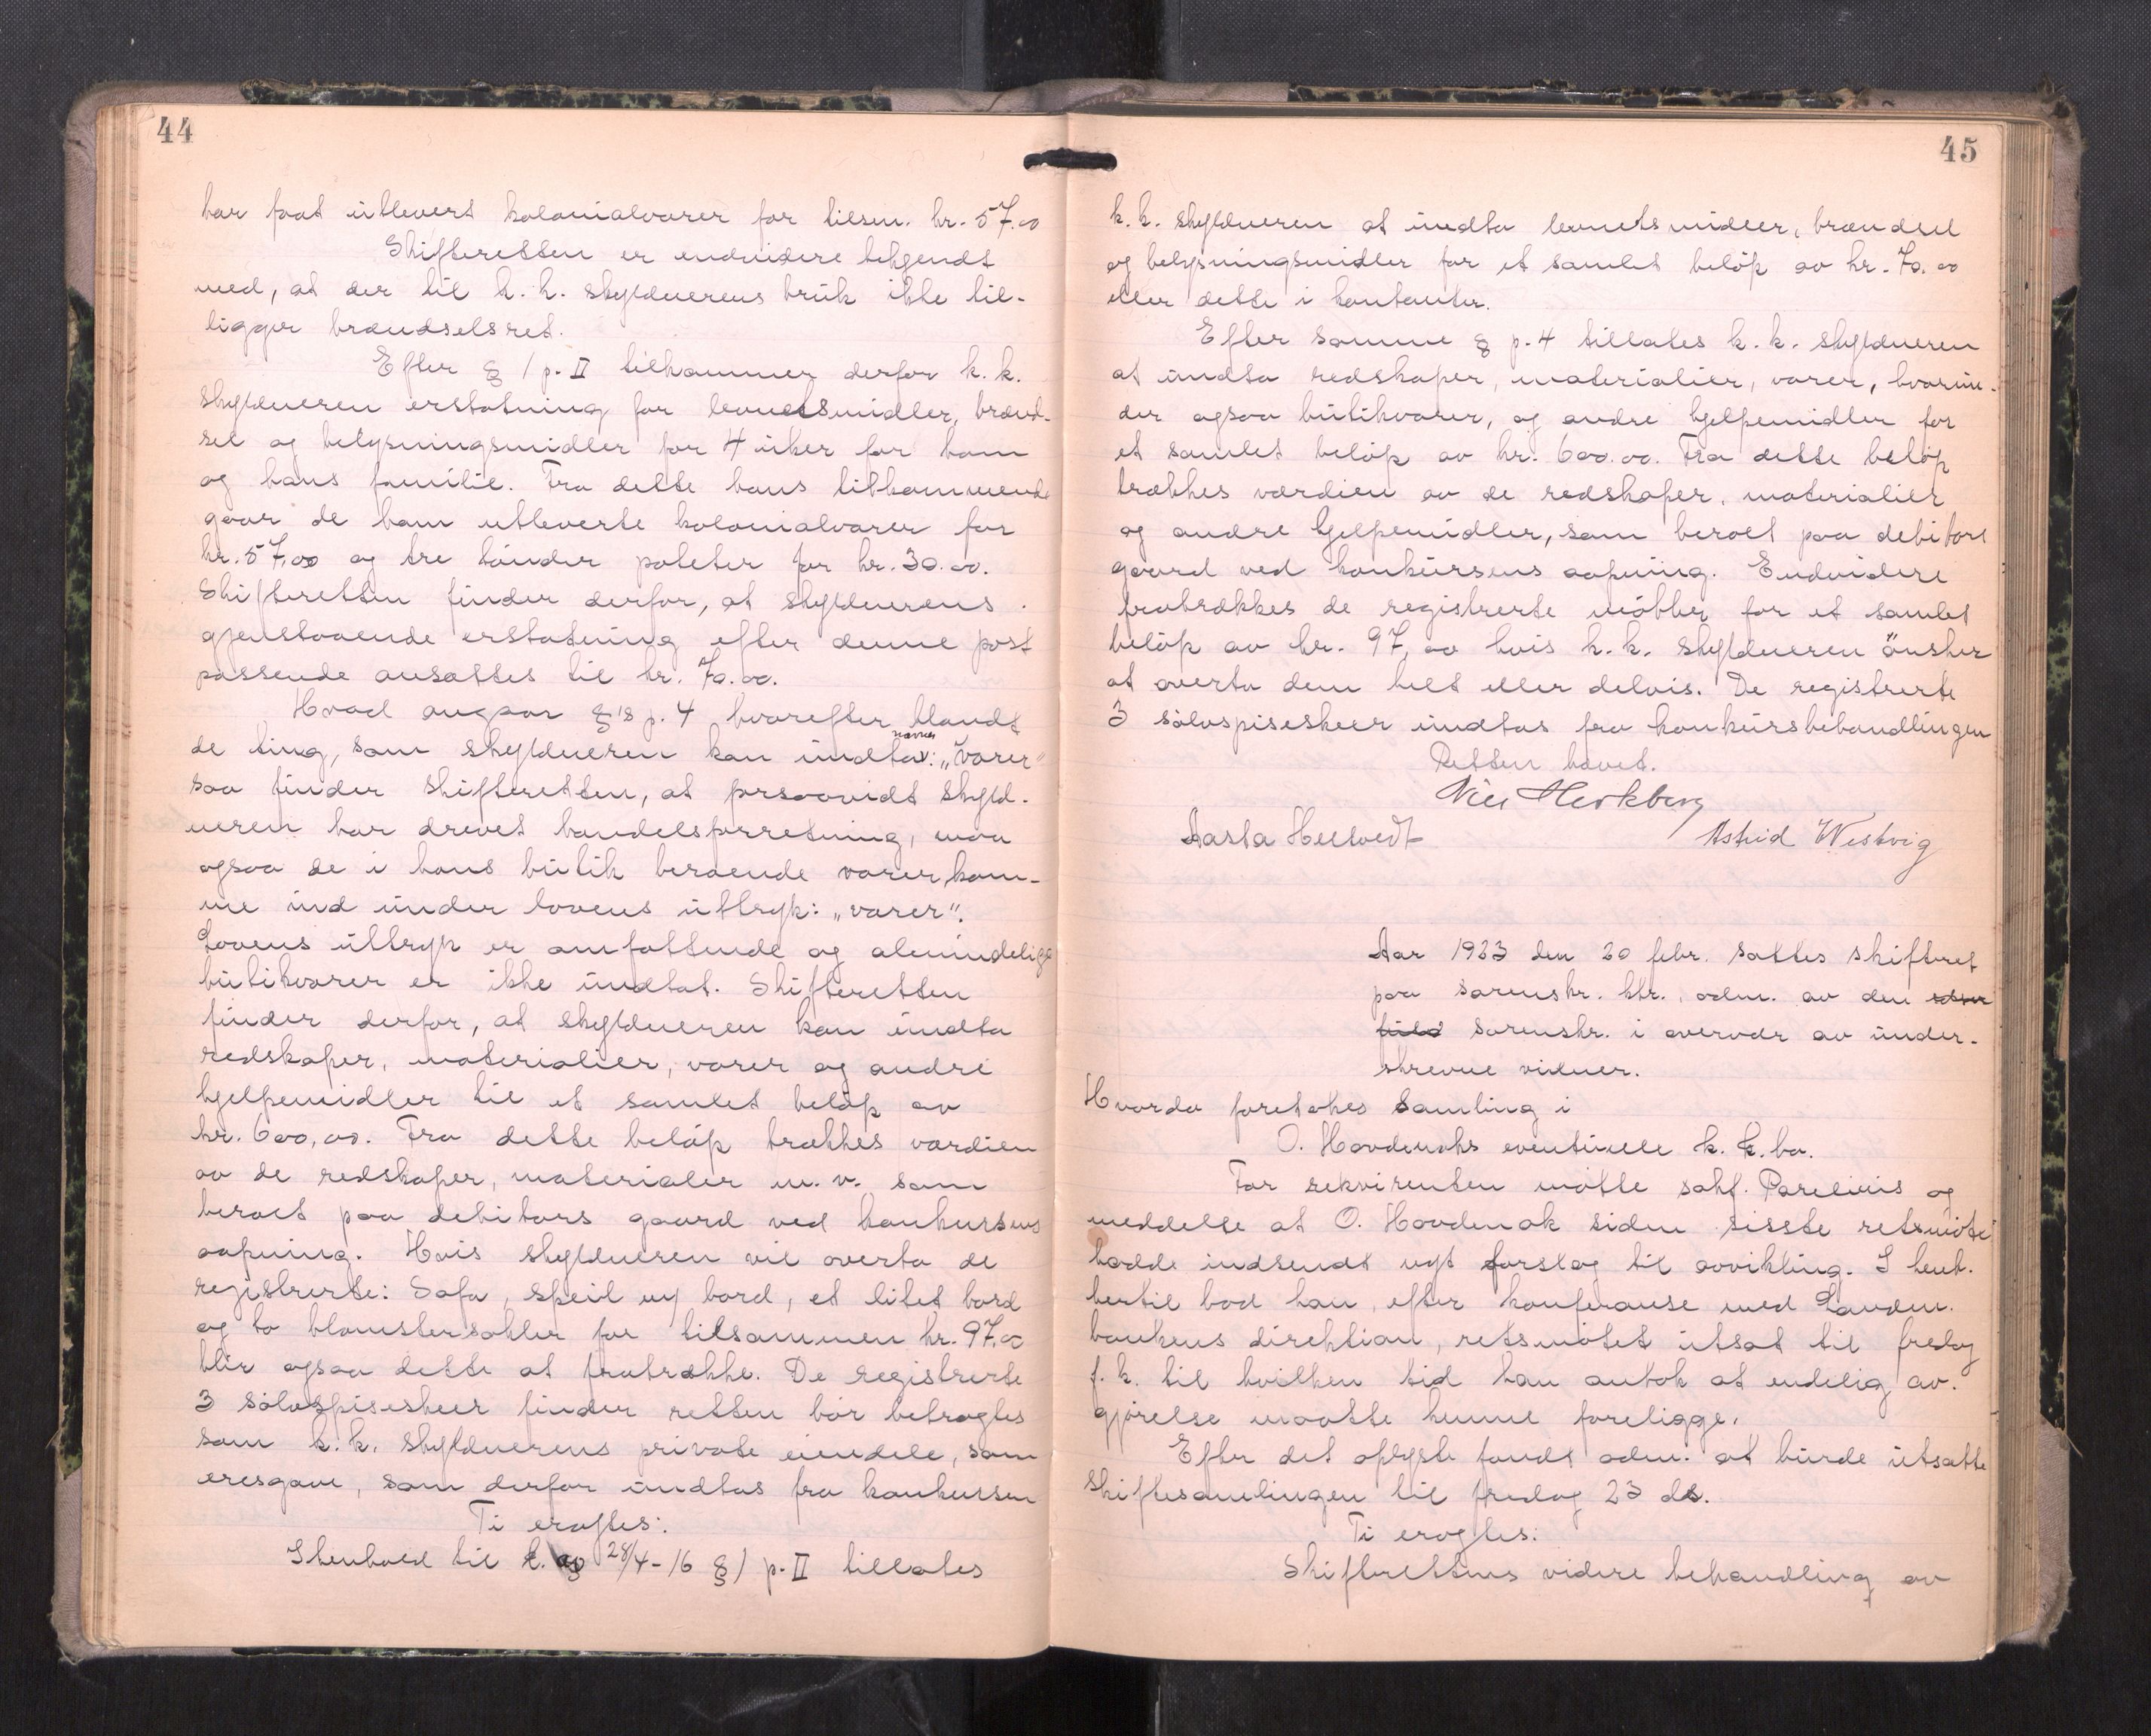 44
har faat utlevert kolonialvarer for tilsm. kr. 57.00
Skifteretten er endvidere bekjendt
med, at der til k.k. skyldnerens bruk ikke til-
ligger brændselsret.
Efter § 1 p. II tilkommer derfor k.k.
skyldneren erstatning for levnetsmidler, brænd-
sel og belysningsmidler for 4 uker for ham
og hans familie. Fra dette hans tilkommende
gaar de ham utleverte kolonialvarer for
kr. 57.00 og tre tönder poteter for kr. 30.00.
Skifteretten finder derfor, at skyldnerens
gjenstaaende erstatning efter denne post
passende ansættes til kr. 70.00.
Hvad angaar § 's p. 4 hvorefter blandt
de ting, som skyldneren kan undta nævnes: „varer"
saa finder skifteretten, at forsaavidt skyld-
neren har drevet handelsforretning, maa
ogsaa de i hans butik beroende varer kom-
me ind under lovens uttryk: „varer".
Lovens uttryk er omfattende og almindelige
butikvarer er ikke undtat. Skifteretten
finder derfor, at skyldneren kan undta
redskaper, materialier, varer og andre
hjelpemidler til et samlet belöp av
kr. 600,00. Fra dette belöp trækkes værdien
av de redskaper, materialer m.v. som
beroet paa debitors gaard ved konkursens
aapning. Hvis skyldneren vil overta de
registrerte: Sofa, speil m/ bord, et litet bord
og to blomstersøkler for tilsammen kr. 97.00
blir ogsaa dette at fratrække. De registrerte
3 sölvspiseskeer finder retten bör betragtes
som k.k. skyldnerens private eiendele, som
æresgave, som derfor undtas fra konkursen
Ti eragtes:
I henhold til l. av 28/4-16 § 1 p. II tillates
45
k.k. skyldneren at undta levnetsmidler, brændsel
og belysningsmidler for et samlet belöp av kr. 70.00
eller dette i kontanter.
Efter samme § p. 4 tillates k.k. skyldneren
at undta redskaper, materialier, varer, hvorun-
der ogsaa butikvarer, og andre hjelpemidler for
et samlet belöp av kr. 600.00. Fra dette belöp
trækkes værdien av de redskaper, materialier
og andre hjelpemidler, som beroet paa debitors
gaard ved konkursens aapning. Endvidere
fratrækkes de registrerte möbler for et samlet
belöp av kr. 97,00 hvis k.k. skyldneren önsker
at overta dem helt eller delvis. De registrerte
3 sölvspiseskeer undtas fra konkursbehandlingen
Retten hævet.
Nils Herkberg
Aasta Heltvedt
Astrid Westvig
Aar 1923 den 20 febr. sattes skifteret
paa sorenskr. ktr., adm. av den
sorenskr. i overvær av under-
skrevne vidner.
Hvorda foretokes samling i
O. Hovdenaks eventuelle k.k.bo.
For rekvirenten mötte sakf. Parelius og
meddelte at O. Hovdenak siden sisste retsmöte
hadde indsendt nyt forslag til avvikling. I henh.
hertil bad han, efter konferanse med Landm.
bankens direktion, retsmötet utsat til fredag
f.k. til hvilken tid han antok at endelig av-
gjörelse maatte kunne foreligge.
Efter det oplyste fandt adm. at burde utsætte
skiftesamlingen til fredag 23 ds.
Ti eragtes:
Skifterettens videre behandling av